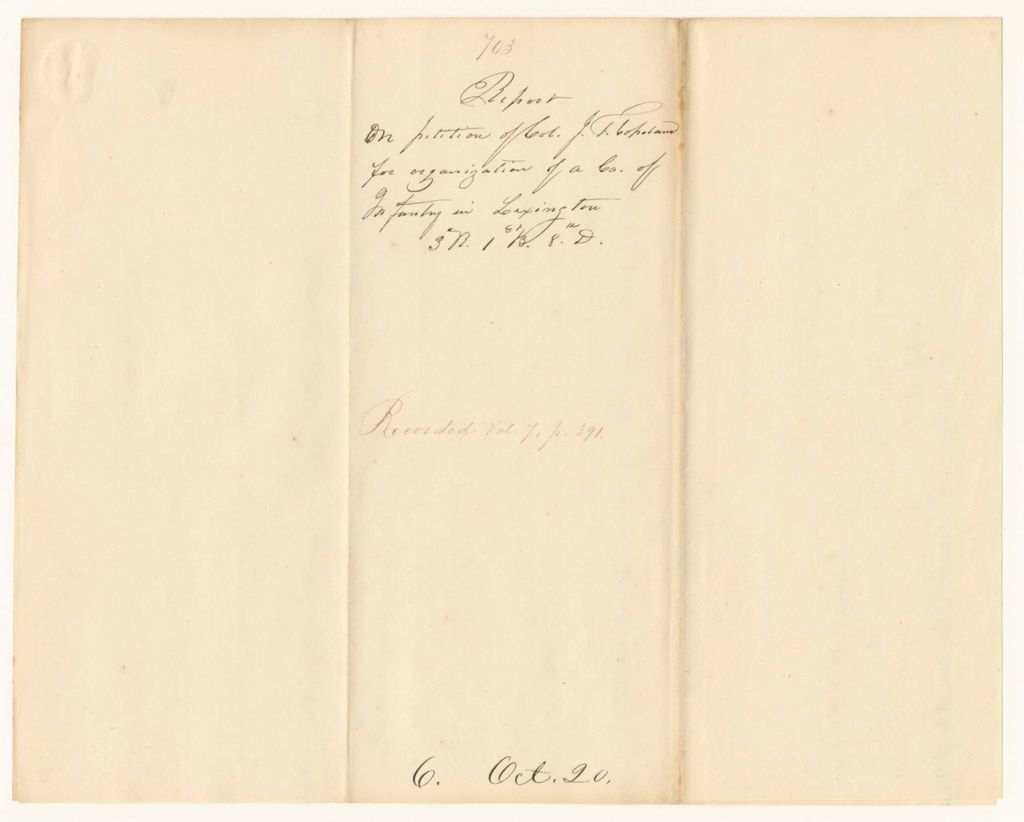 703
Report
On petition of Col. J. T. Copeland
for organization of a Co. of
Infantry in Lexington
3d R. 1st B. 8th D.
Recorded Vol. 7, p. 391.
6. Oct. 20.